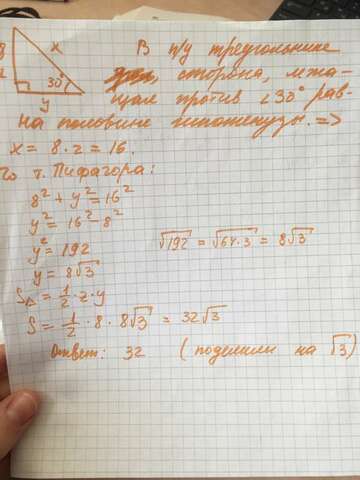 8
x
30°
z
y
В п/у треугольнике
сторона, лежа-
щая против ∠30° рав-
на половине гипотенузы. =>
x = 8 · 2 = 16.
По т. Пифагора:
8² + y² = 16²
y² = 16² - 8²
y² = 192
√192 = √64·3 = 8√3
y = 8√3
S△ = 1/2 · z · y
S = 1/2 · 8 · 8√3 = 32√3
Ответ: 32 (поделили на √3)